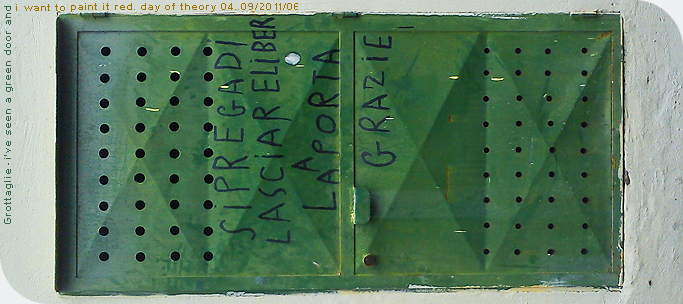 Grottaglie - i've seen a green door and
i want to paint it red. day of theory 04.09/2011/06
SI PREGA DI
LASCIAR E LIBER
A
LA PORTA
GRAZIE